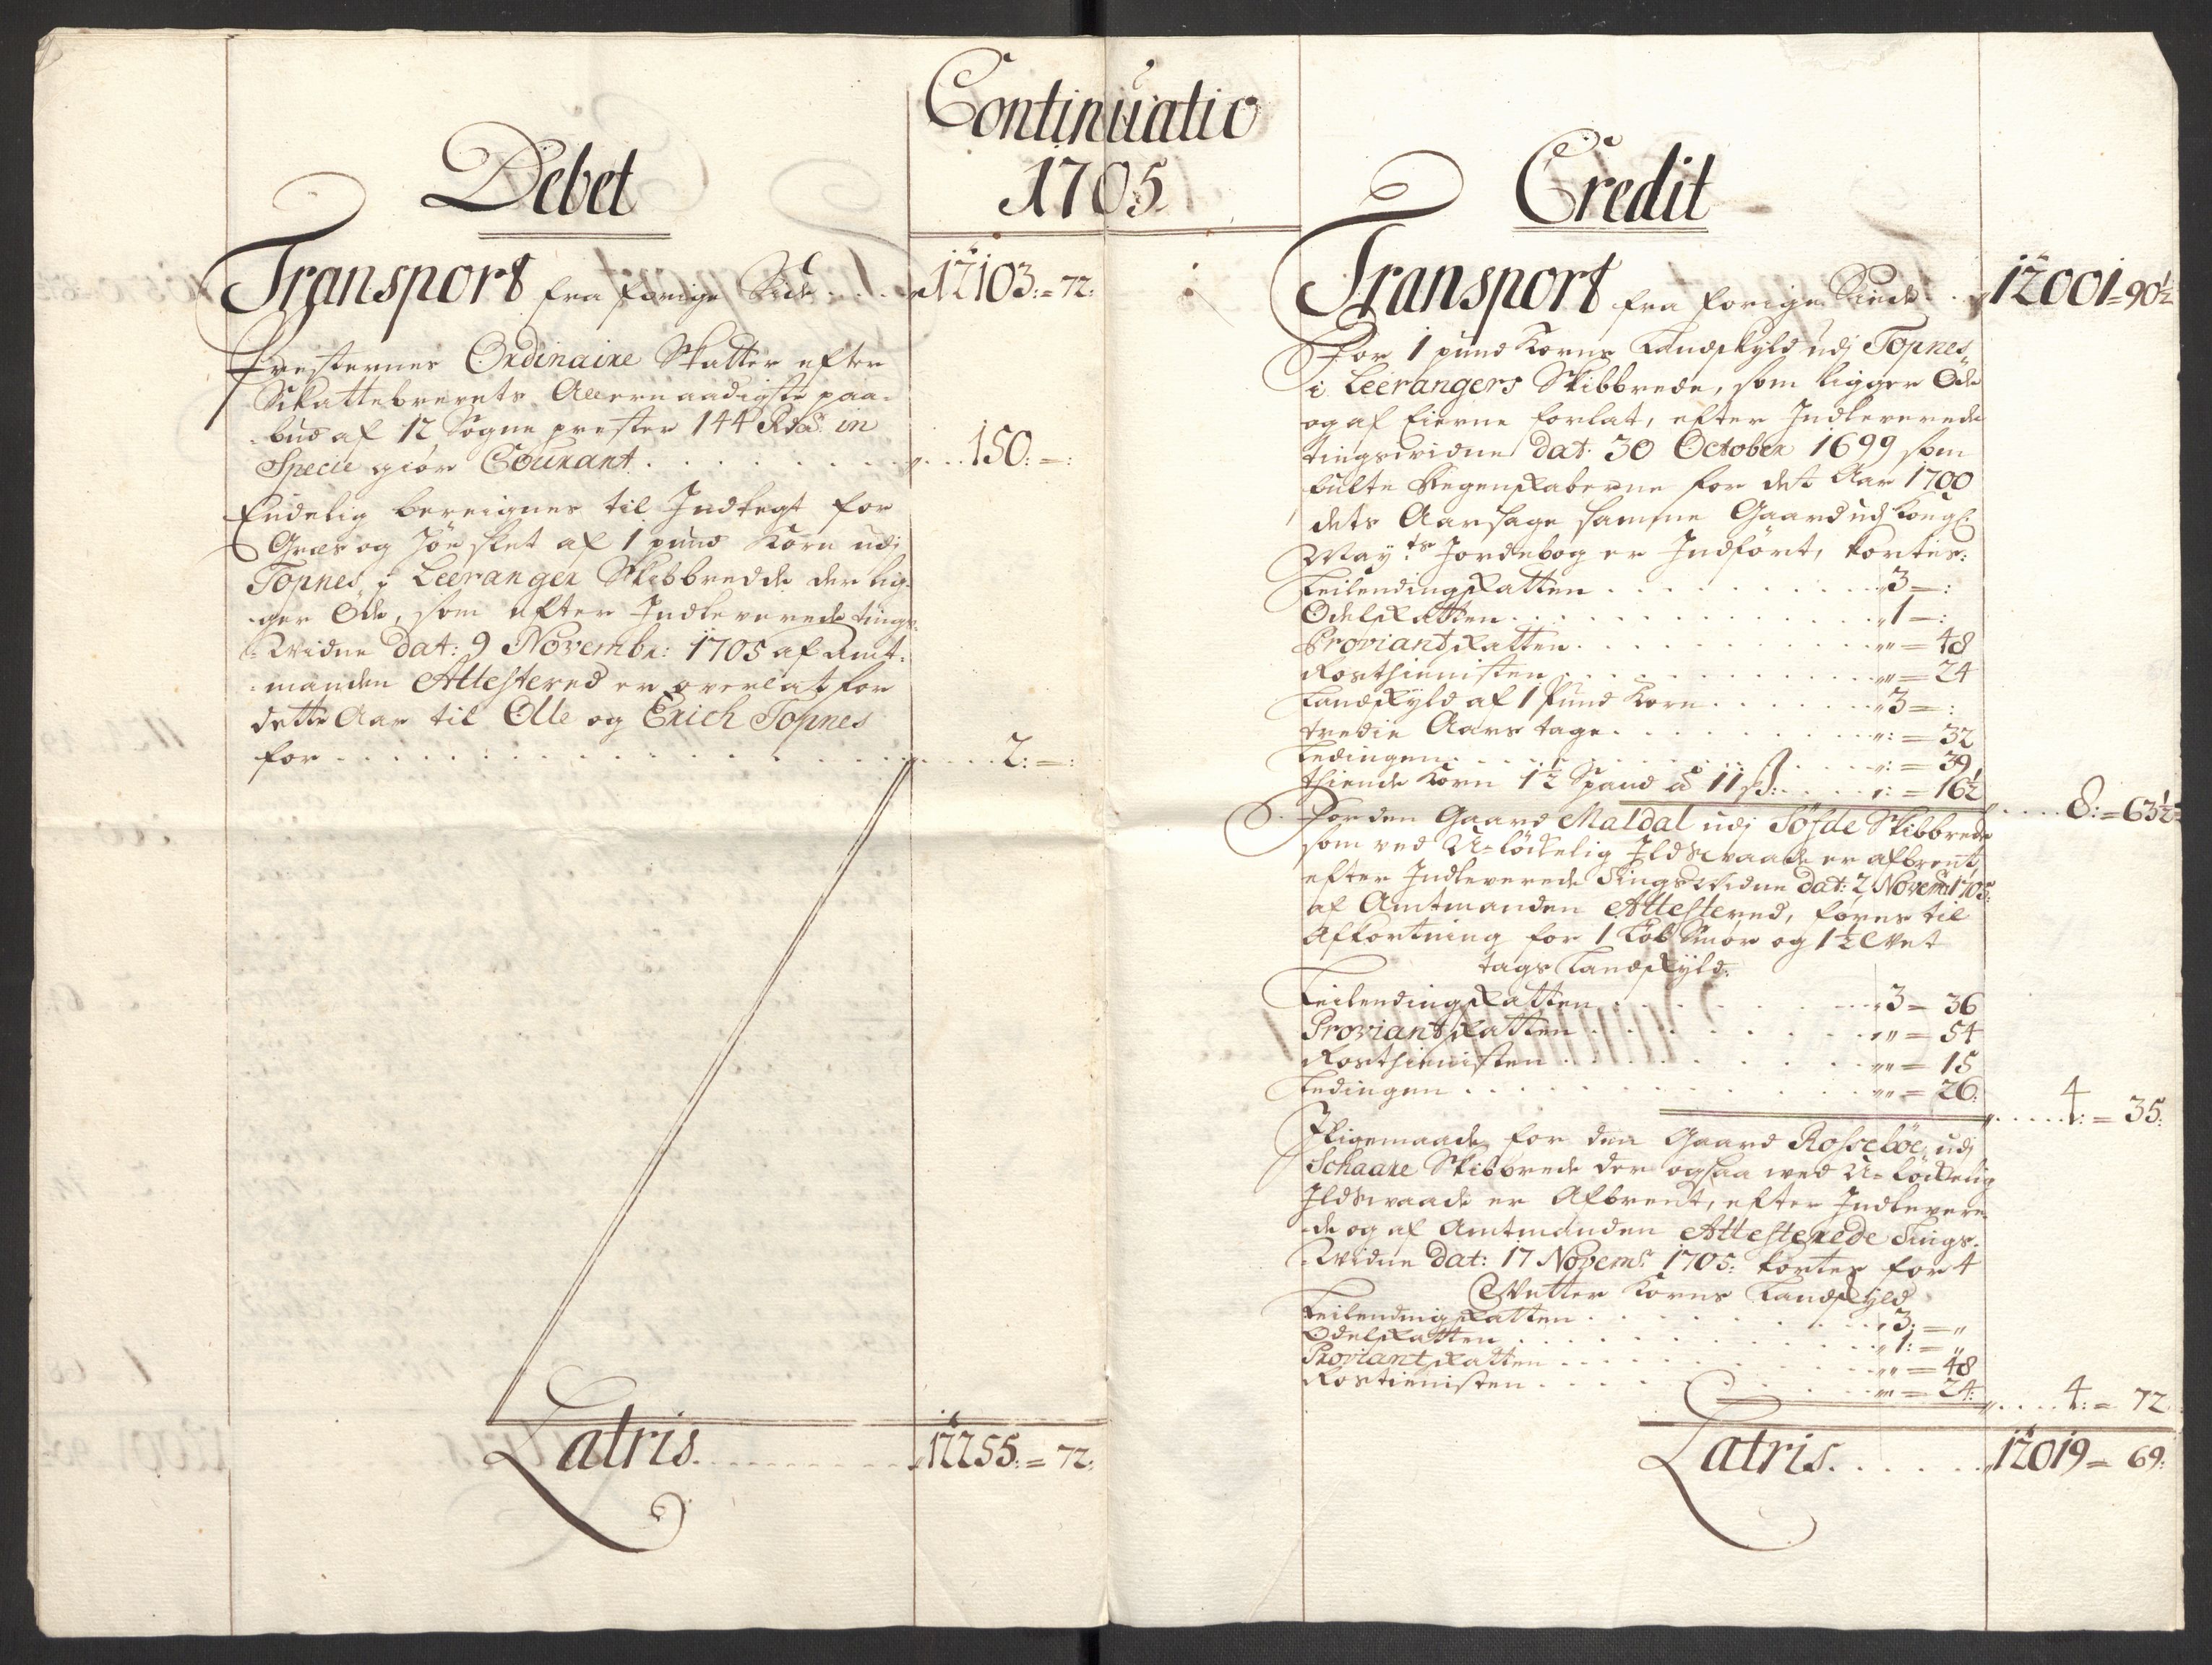 Continuatio
1705
Debet
Transport fra forige Side . . . 12103:=72:
Presternes Ordinaire Skatter efter
Schattebrevets Allernaadigste paa-
bud af 12 Sogne prester 144 Rdr: in
Specie giör Courant . . . . . . . 150:=:
Endelig bereignes til Indtegt for
Græs og Höe slet af 1 pund Korn udi
Topnes i Leeranger Skibbrede der lig-
ger Öde, som efter Indleverede tings-
Widne Dat: 9 Novembr: 1705 af Amt-
manden Attestered er overlat for
dette Aar til Olle og Erich Topnes
for . . . . . . . . . . . . . 2:=:
Latris . . . . . . . . . 12255:=72:
Credit
Transport fra forige Side . . 12001=90½
For 1 pund Korns Landskyld udi Topnes
i Leerangers Skibbrede, som ligger Öde
og af Eierne forlat, efter Indleverede
tingswidne dat. 30 October 1699 som
fulte Regenskaberne for det Aar 1700
dets Aarsage samme Gaard udj Kongl:
May.ts Jordebog er Indfört, kortes:
Leilendingskatten . . . . . . . . . 3=:
Odelskatten . . . . . . . . . . . . 1=:
Proviantskatten . . . . . . . . . . "=48
Rosthienisten . . . . . . . . . . . "=24
Landskyld af 1 Pund Korn . . . . . . 3=:
tredie Aars tage . . . . . . . . . ":=32
Ledingen . . . . . . . . . . . . . ":=39
thiende Korn 1½ Spand à 11 ß: . . . . ":=16½
. . . . 8:=63½
For den Gaard Maldal udj Söfde Skibbrede
som ved U-löckelig Ilds vaade er afbrent
efter Indleverede Tings Widne dat: 2 Novemr 1705:
af Amtmanden Attestered, föres til
Afkortning for 1 Löb Smör og 1½ Wet
tags Landskyld:
Leilendingskatten . . . . . . . . . 3=36
Proviantskatten . . . . . . . . . . "=54
Rosthienisten . . . . . . . . . . . "=15
Ledingen . . . . . . . . . . . . . "=26:
. . . . 4:=35:
Iligemaade for den Gaard Rosseböe udj
Schaare Skibbrede der ogsaa wed U-löckelig
Ilds waade er Afbrent, efter Indlevere-
de og af Amtmanden Attesterede Tings-
Widne Dat: 17 Novemr 1705: kortes for 4
Wetter Korns Landskyld
Leilendingskatten . . . . . . . . . 3:="
Odelskatten . . . . . . . . . . . . 1:="
Proviantskatten . . . . . . . . . . "=48
Rostienisten . . . . . . . . . . . "=24:
. . . . 4:=72
Latris . . . . . . 12019=69: